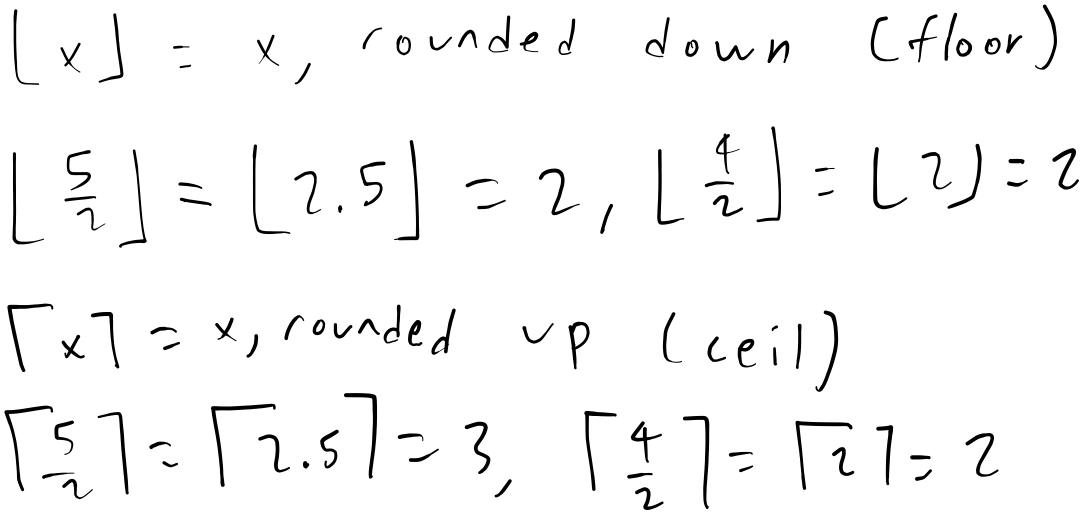 ⌊x⌋ = x, rounded down (floor)
⌊5/2⌋ = ⌊2.5⌋ = 2, ⌊4/2⌋ = ⌊2⌋ = 2
⌈x⌉ = x, rounded up (ceil)
⌈5/2⌉ = ⌈2.5⌉ = 3, ⌈4/2⌉ = ⌈2⌉ = 2